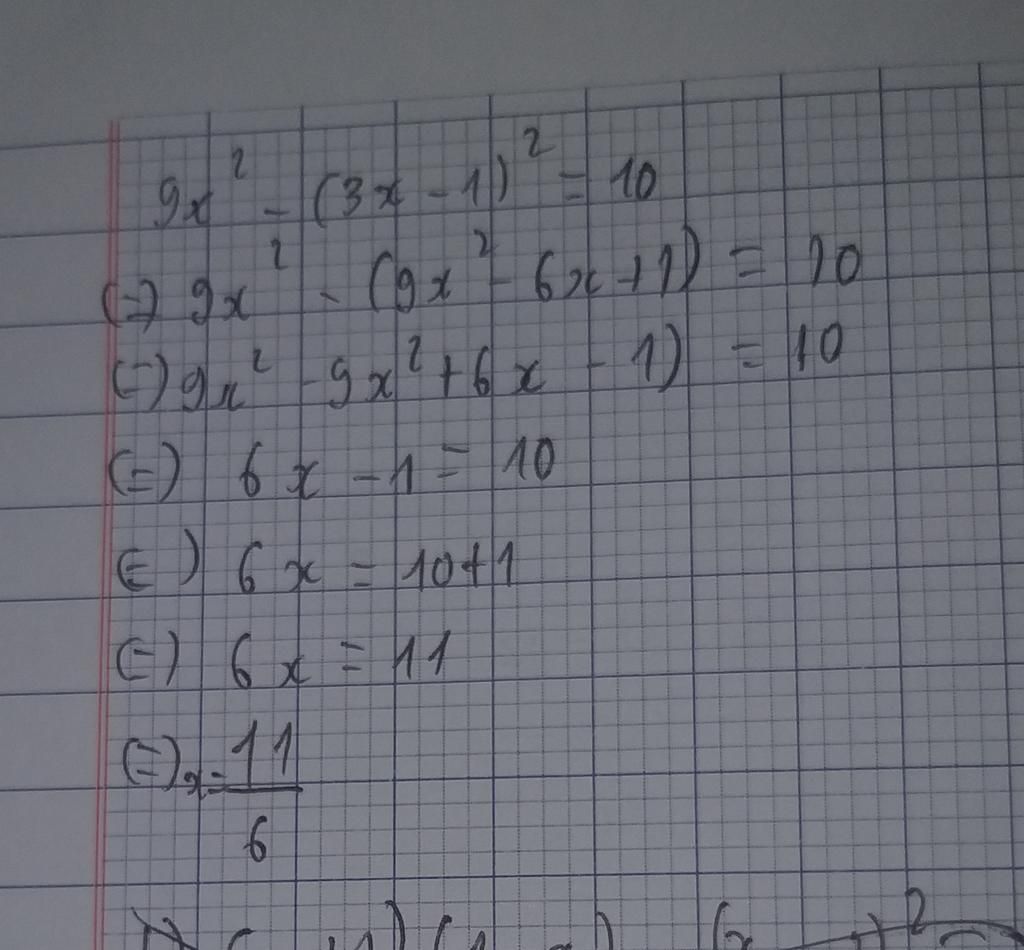 9x² - (3x - 1)² = 10
(=) 9x² - (9x² - 6x + 1) = 10
(=) 9x² - 9x² + 6x - 1) = 10
(=) 6x - 1 = 10
(=) 6x = 10+1
(=) 6x = 11
(=) x = 11/6